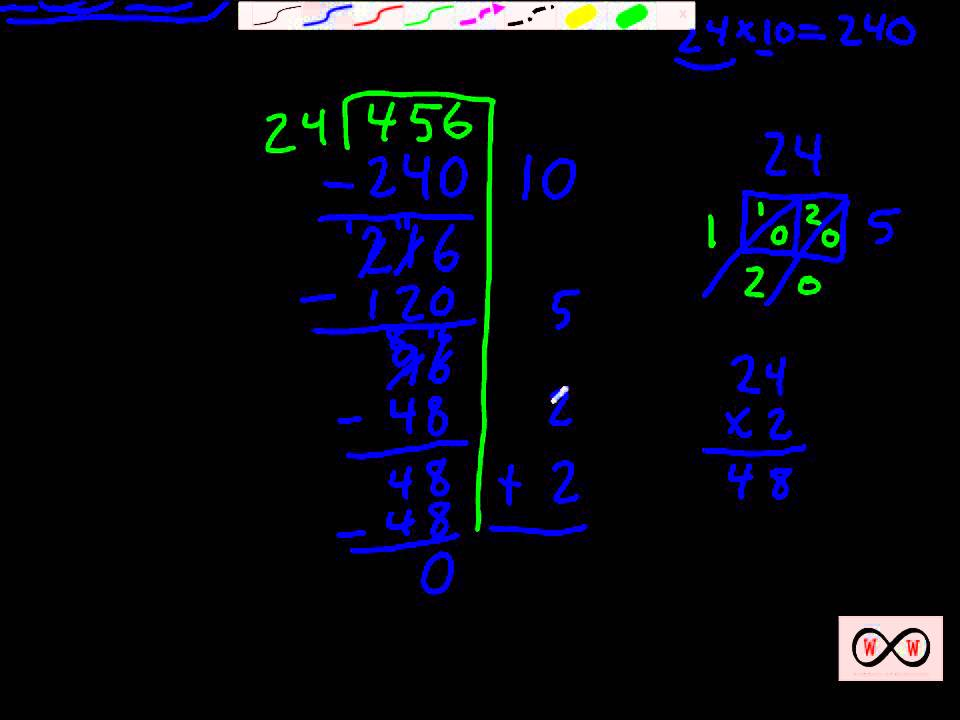 24 × 10 = 240
24 456
- 240 10
216
- 120 5
96
- 48 2
48 + 2
- 48
0
24
1 1 0 2 0 5
2 0
24
× 2
48
W W